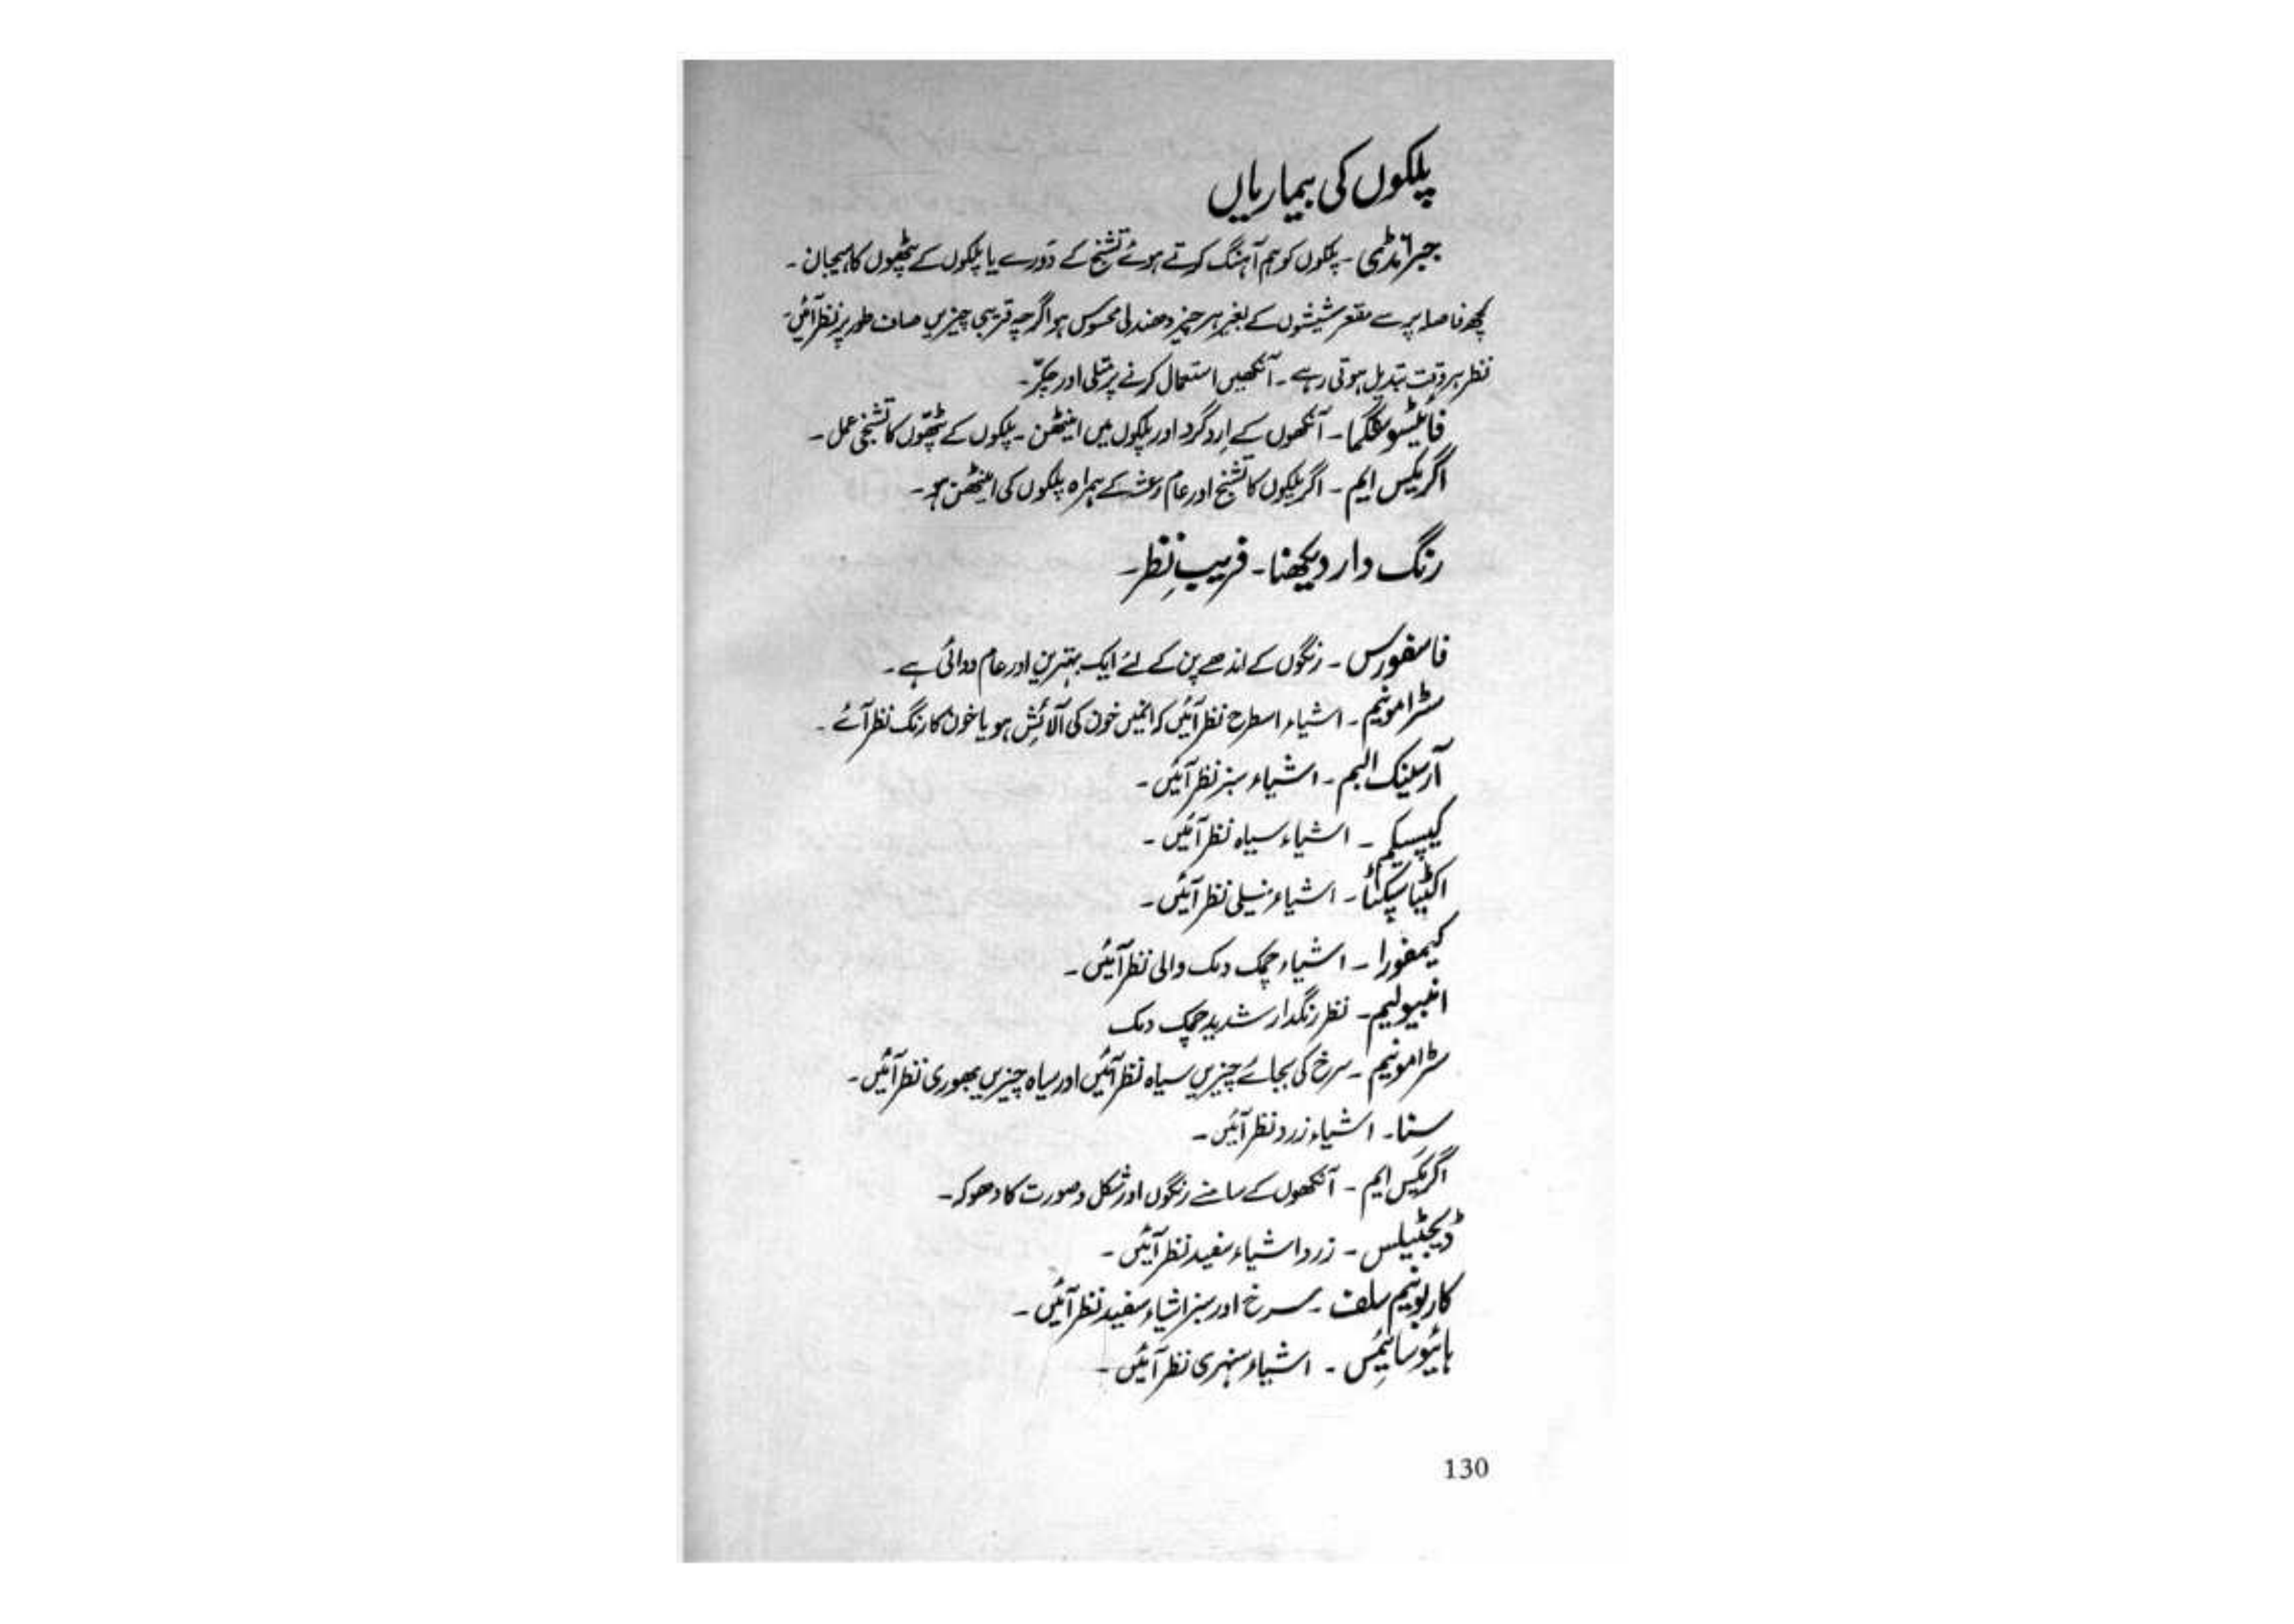 پلکوں کی بیماریاں
جبرانڈی - پلکوں کو ہم آہنگ کرتے ہوئے تشنج کے دَورے یا پلکوں کے پٹھوں کا ہیجان -
کچھ فاصلہ پر سے مقعر شیشوں کے بغیر ہر چیز دھندلی محسوس ہو اگرچہ قریبی چیزیں صاف طور پر نظر آئیں -
نظر ہر وقت تبدیل ہوتی رہے - آنکھیں استعمال کرنے پر متلی اور چکّر -
آنکھوں کے اِرد گرد اور پلکوں میں اینٹھن - پلکوں کے پٹھّوں کا تشنجی عمل -
اگریکس ایم - اگر پلکوں کا تشنج اور عام رعشہ کے ہمراہ پلکوں کی اینٹھن ہو -
رنگ دار دیکھنا - فریبِ نظر -
فاسفورس - رنگوں کے اندھے پن کے لئے ایک بہترین اور عام دوائی ہے -
سٹرامونیم - اشیاء اسطرح نظر آئیں کہ انہیں خون کی آلائش ہو یا خون کا رنگ نظر آئے -
آرسینک البم - اشیاء سبز نظر آئیں -
کیپسیکم - اشیاء سیاہ نظر آئیں -
اکٹیا سپکٹا - اشیاء نیلی نظر آئیں -
کیمفورا - اشیاء چمک دمک والی نظر آئیں -
نظر رنگدار شدید چمک دمک
سٹرامونیم - سرخ کی بجائے چیزیں سیاہ نظر آئیں اور سیاہ چیزیں بھوری نظر آئیں -
سنا - اشیاء زرد نظر آئیں -
اگریکس ایم - آنکھوں کے سامنے رنگوں اور شکل و صورت کا دھوکہ -
ڈیجٹیلس - زرد اشیاء سفید نظر آئیں -
کاربونیم سلف - سرخ اور سبز اشیاء سفید نظر آئیں -
ہائیوسائیمس - اشیاء سنہری نظر آئیں -
130